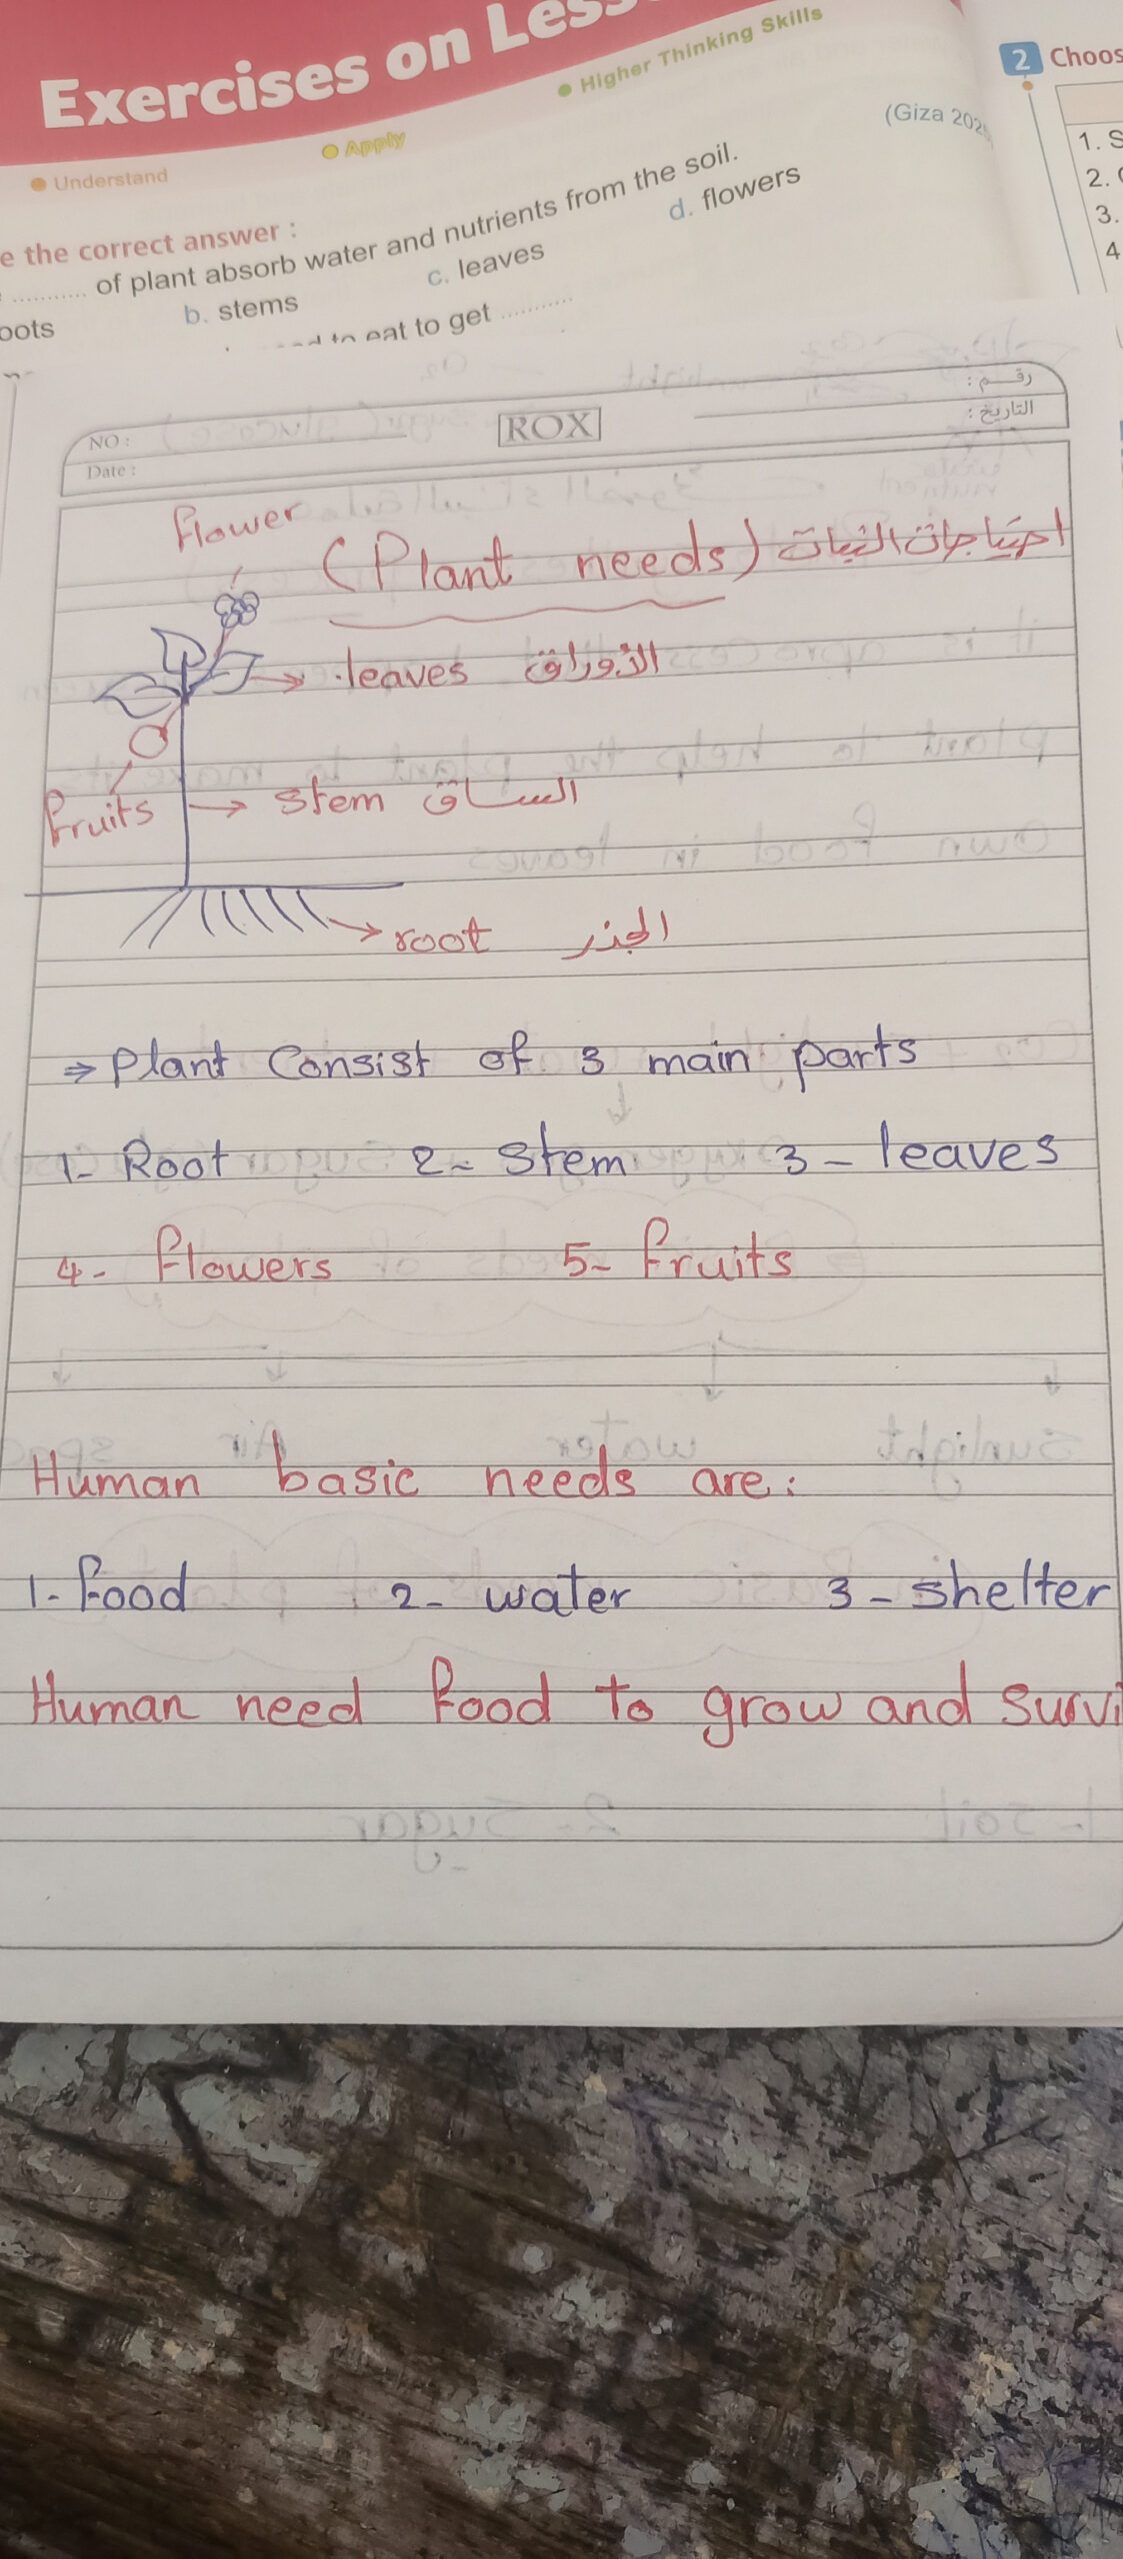 Exercises on Less
Understand
Apply
Higher Thinking Skills
e the correct answer :
(Giza 202
........... of plant absorb water and nutrients from the soil.
oots
b. stems
c. leaves
d. flowers
to eat to get ...........
2 Choos
1. S
2.
3.
4
NO :
Date :
ROX
رقم :
التاريخ :
flower
(Plant needs) احتياجات النبات
leaves الأوراق
fruits
stem الساق
root الجذر
⇒ Plant Consist of 3 main parts
1- Root 2- Stem 3- leaves
4- flowers 5- fruits
Human basic needs are:
1- food 2- water 3- shelter
Human need food to grow and survi